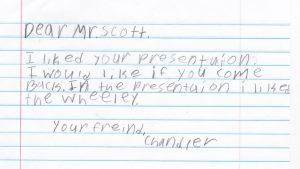 Dear Mr.scott.
I liked your presentuion.
I would like if you come
Back. In the presentaion i liked
the wheeley.
Your freind,
chandler